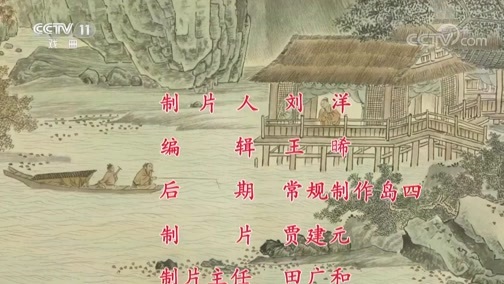 CCTV 11
戏曲
CCTV.com
制片人 刘洋
编辑 王晞
后期 常规制作岛四
制片 贾建元
制片主任 田广和